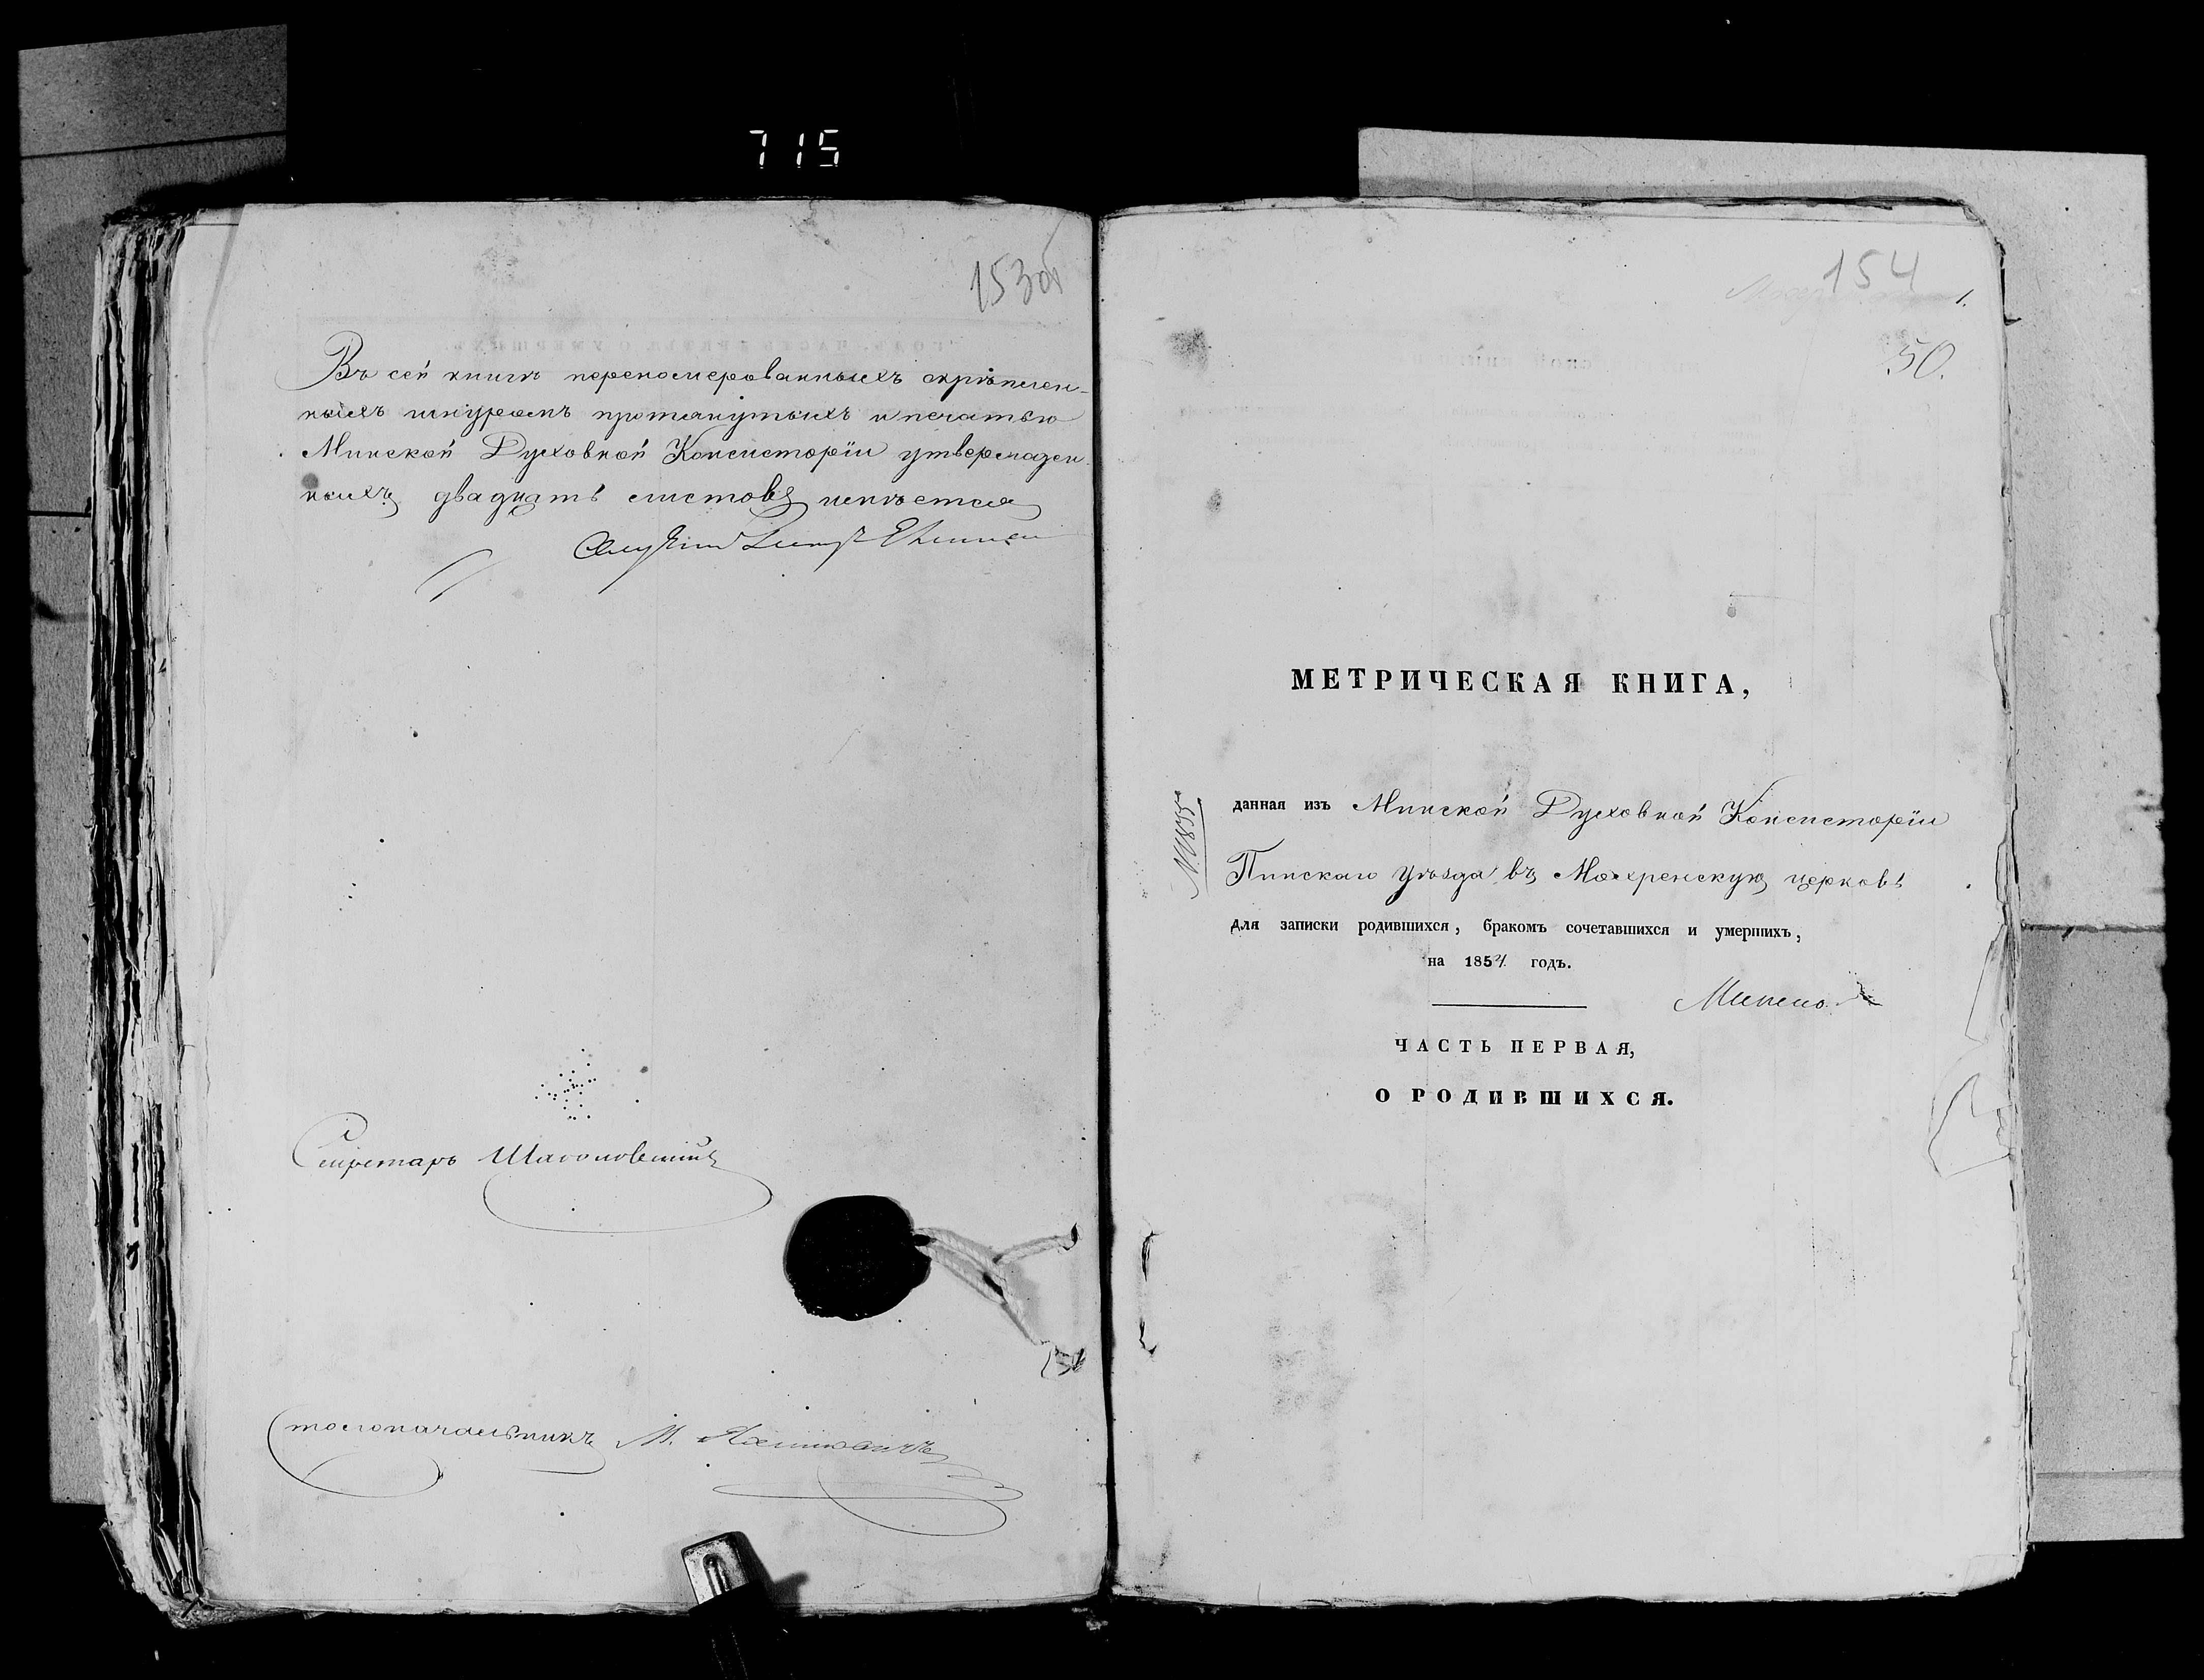 715
153об
Въ сей книгѣ перенумерованныхъ скрѣплен-
ныхъ шнуромъ протянутыхъ и печатью
Минской Духовной Консисторіи утвержден
ныхъ двадцать листовъ имѣется
Секретарь
Столоначальникъ М.
154
1.
50.
МЕТРИЧЕСКАЯ КНИГА,
данная изъ Минской Духовной Консисторіи
Пинскаго уѣзда въ Мохренскую церковь
для записки родившихся, бракомъ сочетавшихся и умершихъ,
на 1854 годъ.
ЧАСТЬ ПЕРВАЯ,
О РОДИВШИХСЯ.